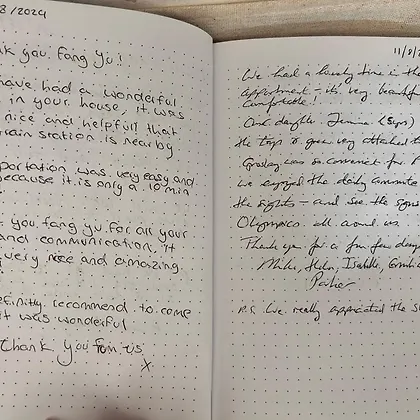 8/2024
k you Fang Yu!
have had a wonderful
in your house. it was
nice and helpfull that
train station is nearby
portation was very easy and
because it is only a 10 min
you fang yu for all your
and communication. it
very nice and amazing.
efinitly recommend to come
it was wonderful
thank you from us
x
11/8/2
We had a lovely time in th
appartment - it's very beautif
comfortable!
Our daughter (5yrs)
the toys & grew very attached t
was so convenient for
we enjoyed the daily commute
the sights - and see the
Olympics all around us.
Thank you for a fun few days
Mike, Helen, Isabelle,
P.S. We really appreciated the